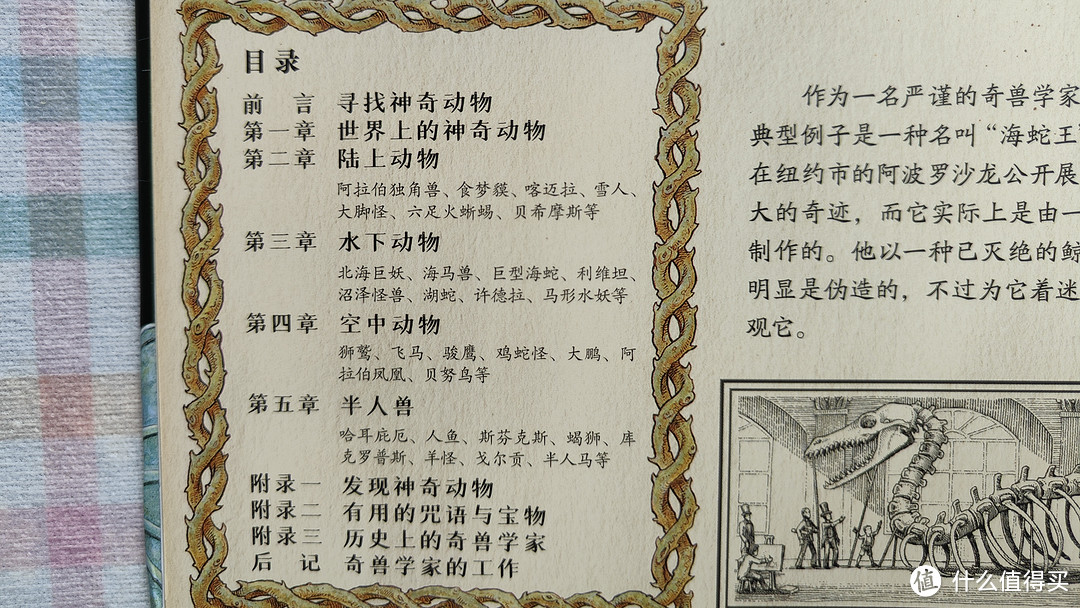 目录
前 言 寻找神奇动物
第一章 世界上的神奇动物
第二章 陆上动物
阿拉伯独角兽、食梦貘、喀迈拉、雪人、
大脚怪、六足火蜥蜴、贝希摩斯等
第三章 水下动物
北海巨妖、海马兽、巨型海蛇、利维坦、
沼泽怪兽、湖蛇、许德拉、马形水妖等
第四章 空中动物
狮鹫、飞马、骏鹰、鸡蛇怪、大鹏、阿
拉伯凤凰、贝努鸟等
第五章 半人兽
哈耳庇厄、人鱼、斯芬克斯、蝎狮、库
克罗普斯、羊怪、戈尔贡、半人马等
附录一 发现神奇动物
附录二 有用的咒语与宝物
附录三 历史上的奇兽学家
后 记 奇兽学家的工作
作为一名严谨的奇兽学家
典型例子是一种名叫“海蛇王”
在纽约市的阿波罗沙龙公开展
大的奇迹，而它实际上是由一
制作的。他以一种已灭绝的鲸
明显是伪造的，不过为它着迷
观它。
值 什么值得买